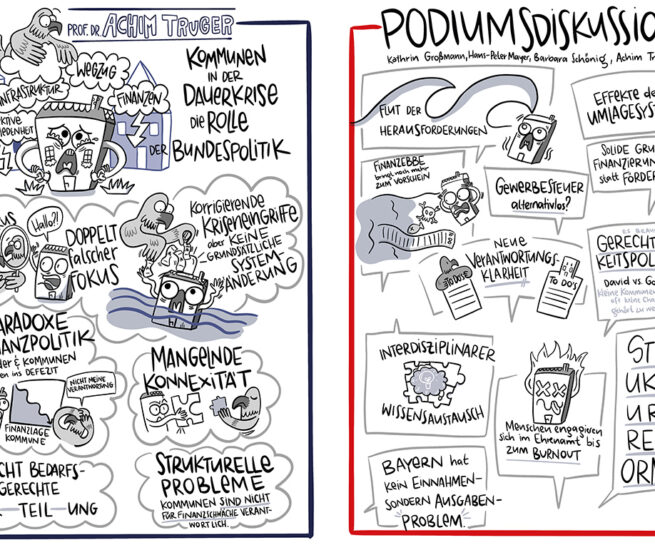 PROF. DR. ACHIM TRUGER
KOMMUNEN
IN DER
DAUERKRISE
DIE ROLLE
DER BUNDESPOLITIK
WEGZUG
INFRASTRUKTUR
FINANZEN
Hallo?!
DOPPELT
falscher
FOKUS
KORRIGIERENDE
KRISENEINGRIFFE
aber KEINE
GRUNDSÄTZLICHE
SYSTEM-
ÄNDERUNG
NICHT MEINE
VERANTWORTUNG
FINANZLAGE
KOMMUNE
MANGELNDE
KONNEXITÄT
BEDARFS-
GERECHTE
TEIL UNG
STRUKTURELLE
PROBLEME
KOMMUNEN SIND NICHT
FÜR FINANZSCHWÄCHE VERANT-
WORTLICH.
PODIUMSDISKUSSIO
Kathrin Großmann, Hans-Peter Mayer, Barbara Schönig, Achim Tr
FLUT DER
HERAUSFORDERUNGEN
EFFEKTE de
UMLAGESYST
FINANZEBBE
bringt noch mehr
ZUM VORSCHEIN
SOLIDE GRU
FINANZIERUN
statt FÖRDER
GEWERBESTEUER
alternativlos?
NEUE
VERANTWORTUNGS-
KLARHEIT
TO DO'S
TO DO'S
GERECHT
KEITSPOLI
David vs. Go
kleine Kommunen
INTERDISZIPLINÄRER
WISSENSAUSTAUSCH
Menschen engagieren
sich im Ehrenamt bis
zum BURNOUT
ST
UK
UR
RE
ORM
BAYERN hat
KEIN EINNAHMEN-
SONDERN AUSGABEN-
PROBLEM.